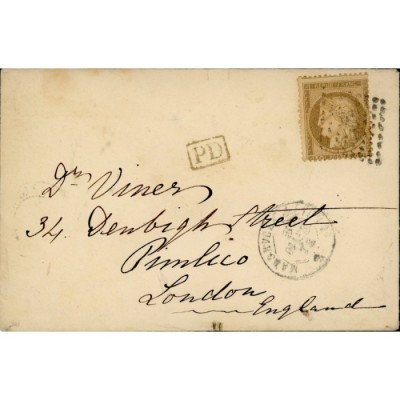 PD
Dr Viner
34. Denbigh Street
Pimlico
London
England